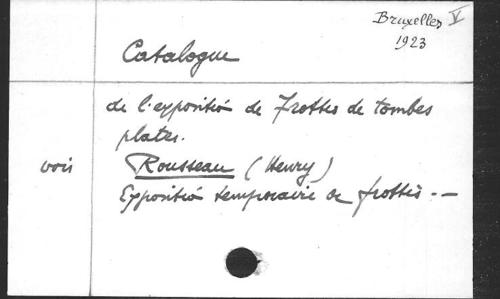 Bruxelles V
1923
Catalogue
de l'exposition de Frottis de tombes
plates.
vois Rousseau (Henry)
Exposition temporaire de frottis. —